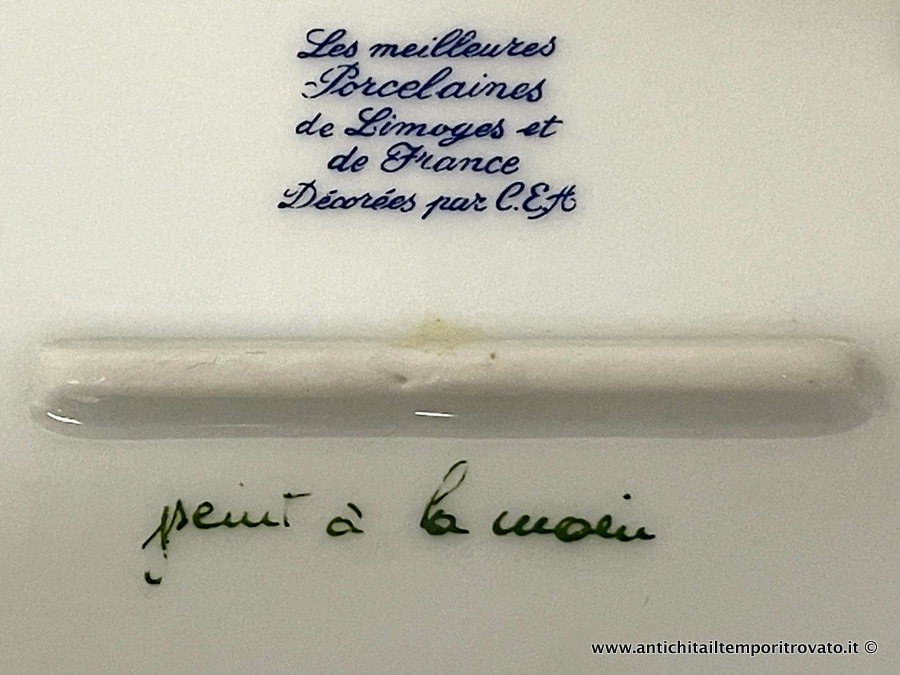 Les meilleures
Porcelaines
de Limoges et
de France
Décorées par C.E.H
peint à la main
www.antichitailtemporitrovato.it ©